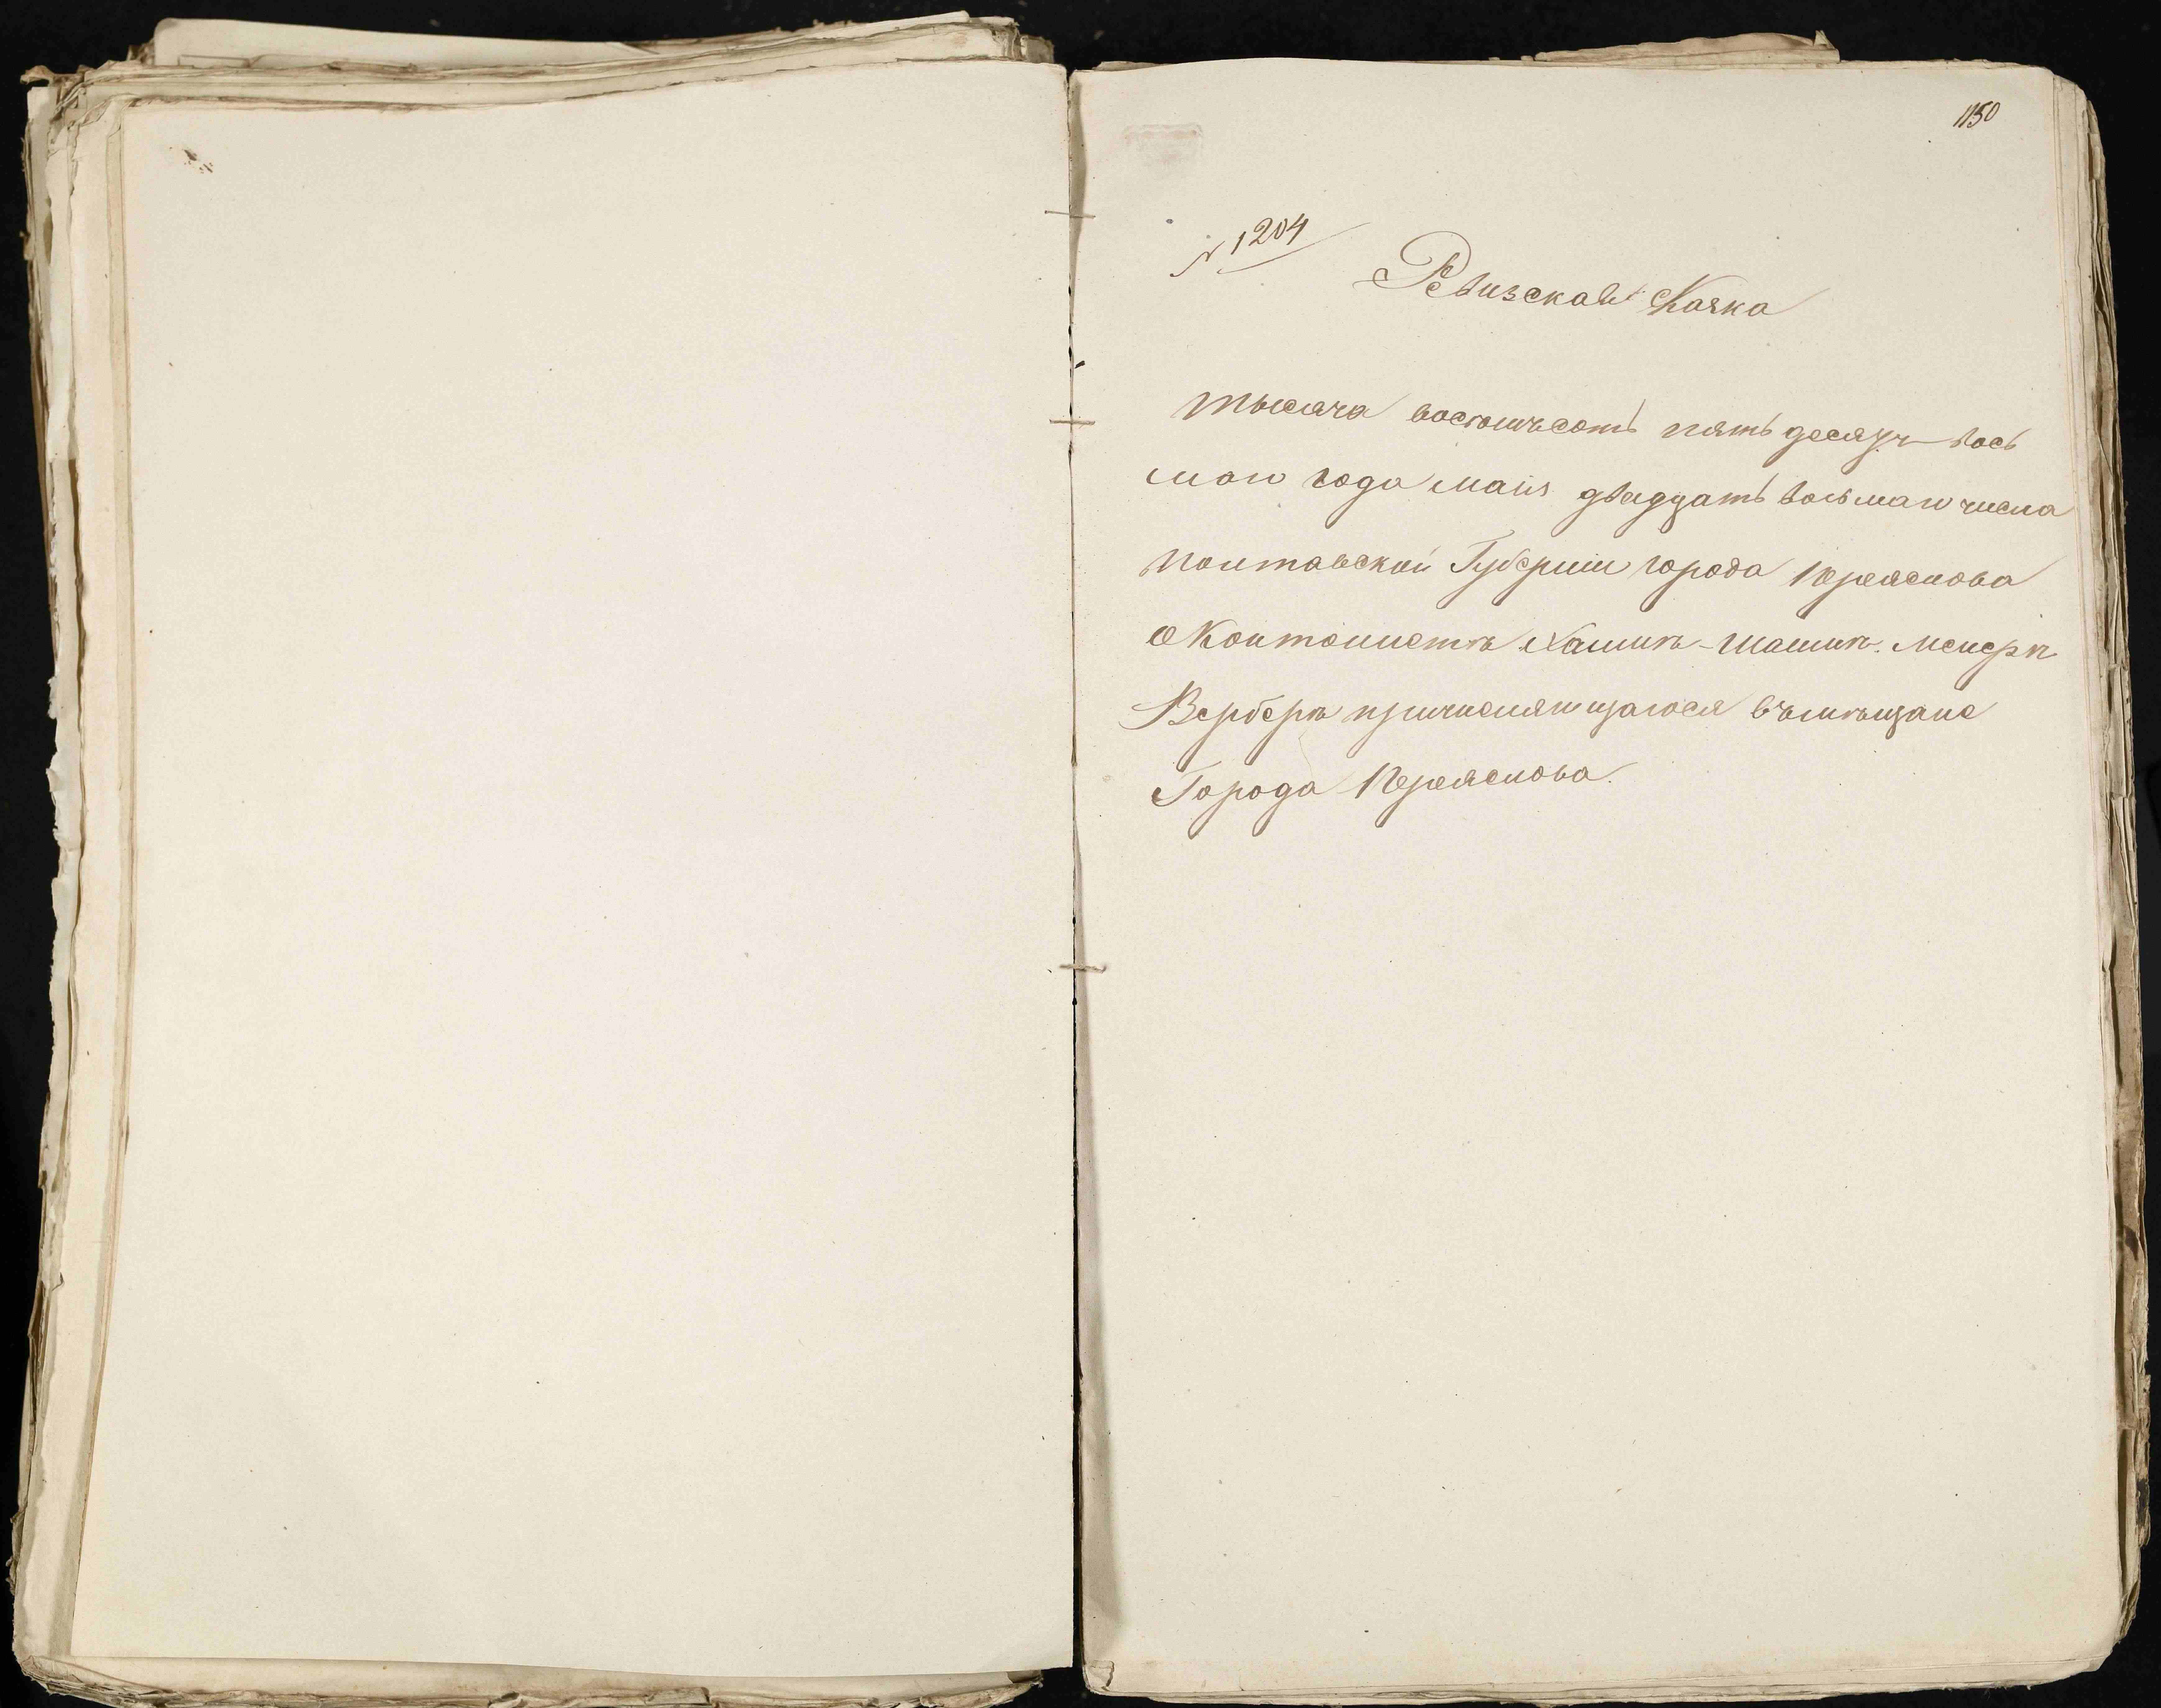 1150
№ 1204
Ревизская Скаска
тысяча восемьсотъ пять десятъ вось
маго года маия двадцать восьмаго числа
Полтавской Губернии города Переяслова
о Кантонистѣ Меиеръ
Верберъ причисляющагося въ мѣщане
Города Переяслова.